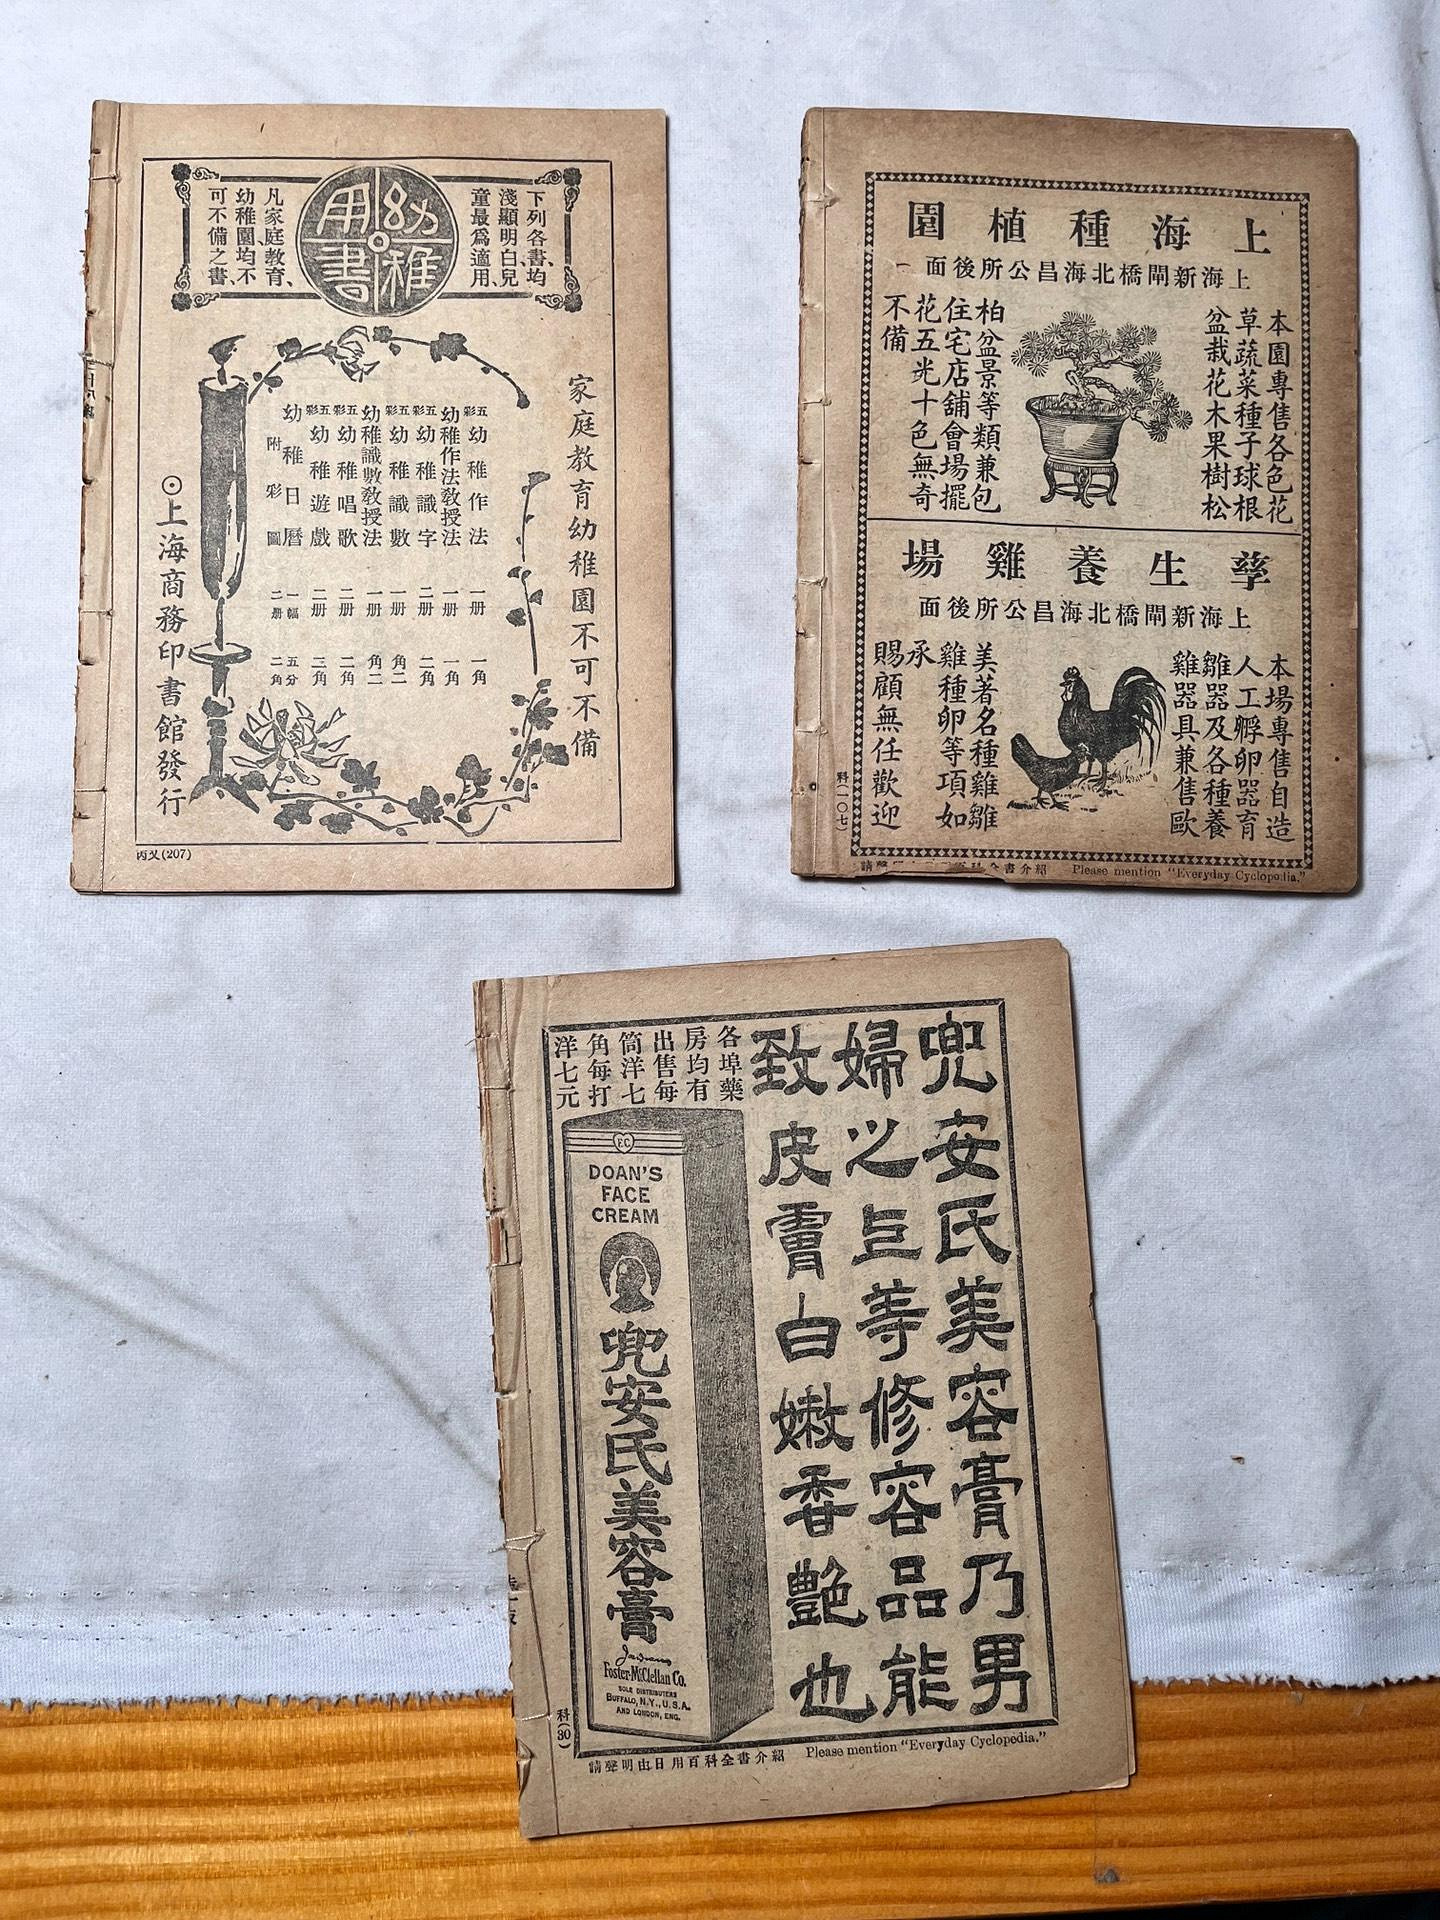 幼稚用書
下列各書、均
淺顯明白、兒
童最爲適用、
凡家庭教育、
幼稚園均不
可不備之書、
家庭教育幼稚園不可不備
五彩幼稚作法 一册 一角
幼稚作法教授法 一册 一角
五彩幼稚識字 二册 二角
五彩幼稚識數 一册 角二
幼稚識數教授法 一册 角二
五彩幼稚唱歌 二册 二角
五彩幼稚遊戲 二册 三角
幼稚日曆 一幅 五分
附彩圖 二册 二角
⊙上海商務印書館發行
丙又(207)
上海種植園
上海新閘橋北海昌公所後面
本園專售各色花
草蔬菜種子球根
盆栽花木果樹松
柏盆景等類兼包
住宅店舖會場擺
花五光十色無奇
不備
孳生養雞場
上海新閘橋北海昌公所後面
本場專售自造
人工孵卵器育
雛器及各種養
雞器具兼售歐
美著名種雞雛
雞種卵等項如
承
賜顧無任歡迎
科(一〇七)
書介紹 Please mention "Everyday Cyclopedia."
兜安氏美容膏乃男
婦之巨等修容品能
致皮膚白嫩香艷也
各埠藥
房均有
出售每
筒洋七
角每打
洋七元
F.C
DOAN'S
FACE
CREAM
兜安氏美容膏
Foster-McClellan Co.
SOLE DISTRIBUTERS
BUFFALO, N.Y., U.S.A.
AND LONDON, ENG.
科(30)
請聲明由日用百科全書介紹 Please mention "Everyday Cyclopedia."